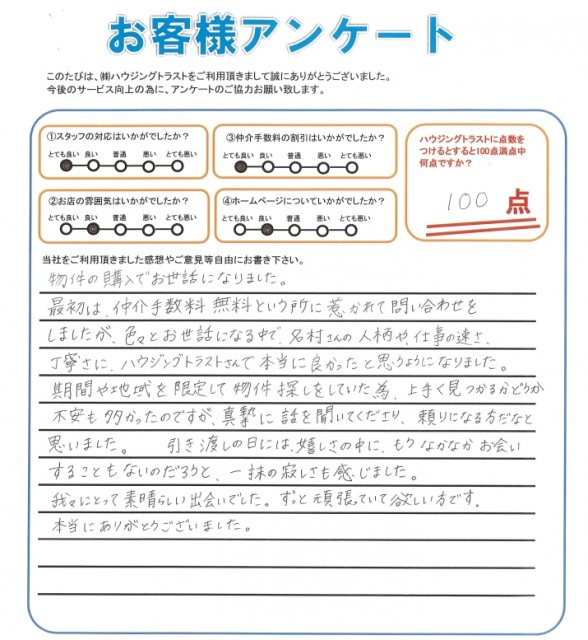 お客様アンケート
このたびは、㈱ハウジングトラストをご利用頂きまして誠にありがとうございました。
今後のサービス向上の為に、アンケートのご協力お願い致します。
①スタッフの対応はいかがでしたか？
とても良い 良い 普通 悪い とても悪い
③仲介手数料の割引はいかがですか？
とても良い 良い 普通 悪い とても悪い
ハウジングトラストに点数を
つけるとすると100点満点中
何点ですか？
100 点
②お店の雰囲気はいかがですか？
とても良い 良い 普通 悪い とても悪い
④ホームページについていかがですか？
とても良い 良い 普通 悪い とても悪い
当社をご利用頂きました感想やご意見等自由にお書き下さい。
物件の購入でお世話になりました。
最初は、仲介手数料無料という所に惹かれて問い合わせを
しましたが、色々とお世話になる中で、名村さんの人柄や仕事の速さ、
丁寧さに、ハウジングトラストさんで本当に良かったと思うようになりました。
期間や地域を限定して物件探しをしていた為、上手く見つかるかどうか
不安も多かったのですが、真摯に話を聞いてくださり、頼りになる方だなと
思いました。 引き渡しの日には、嬉しさの中に、もうなかなかお会い
することもないのだろうと、一抹の寂しさも感じました。
我々にとって素晴らしい出会いでした。ずっと頑張っていて欲しい方です。
本当にありがとうございました。